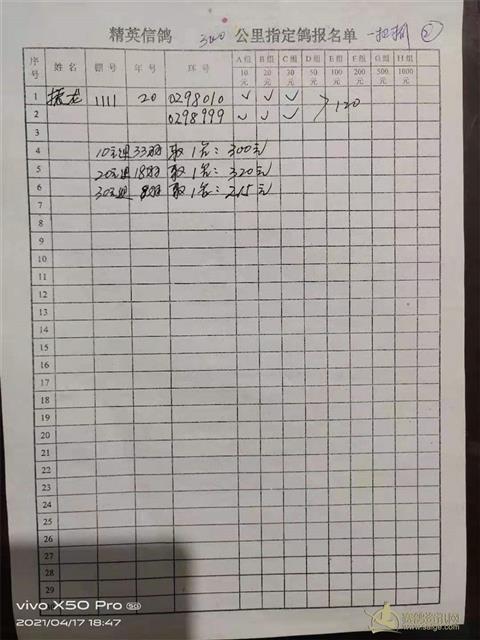 精英信鸽 300 公里指定鸽报名单 ②
序号 姓名 棚号 年号 环号 A组10元 B组20元 C组30元 D组50元 E组100元 F组200元 G组500元 H组1000元
1 1111 20 0298010 ✓ ✓ ✓ 120
2 0298999 ✓ ✓ ✓
3
4 10元组 33羽 取1名：300元
5 20元组 18羽 取1名：320元
6 30元组 8羽 取1名：215元
7
8
9
10
11
12
13
14
15
16
17
18
19
20
21
22
23
24
25
26
27
28
29
vivo X50 Pro 5G
2021/04/17 18:47
赛鸽资讯网
www.saige.com